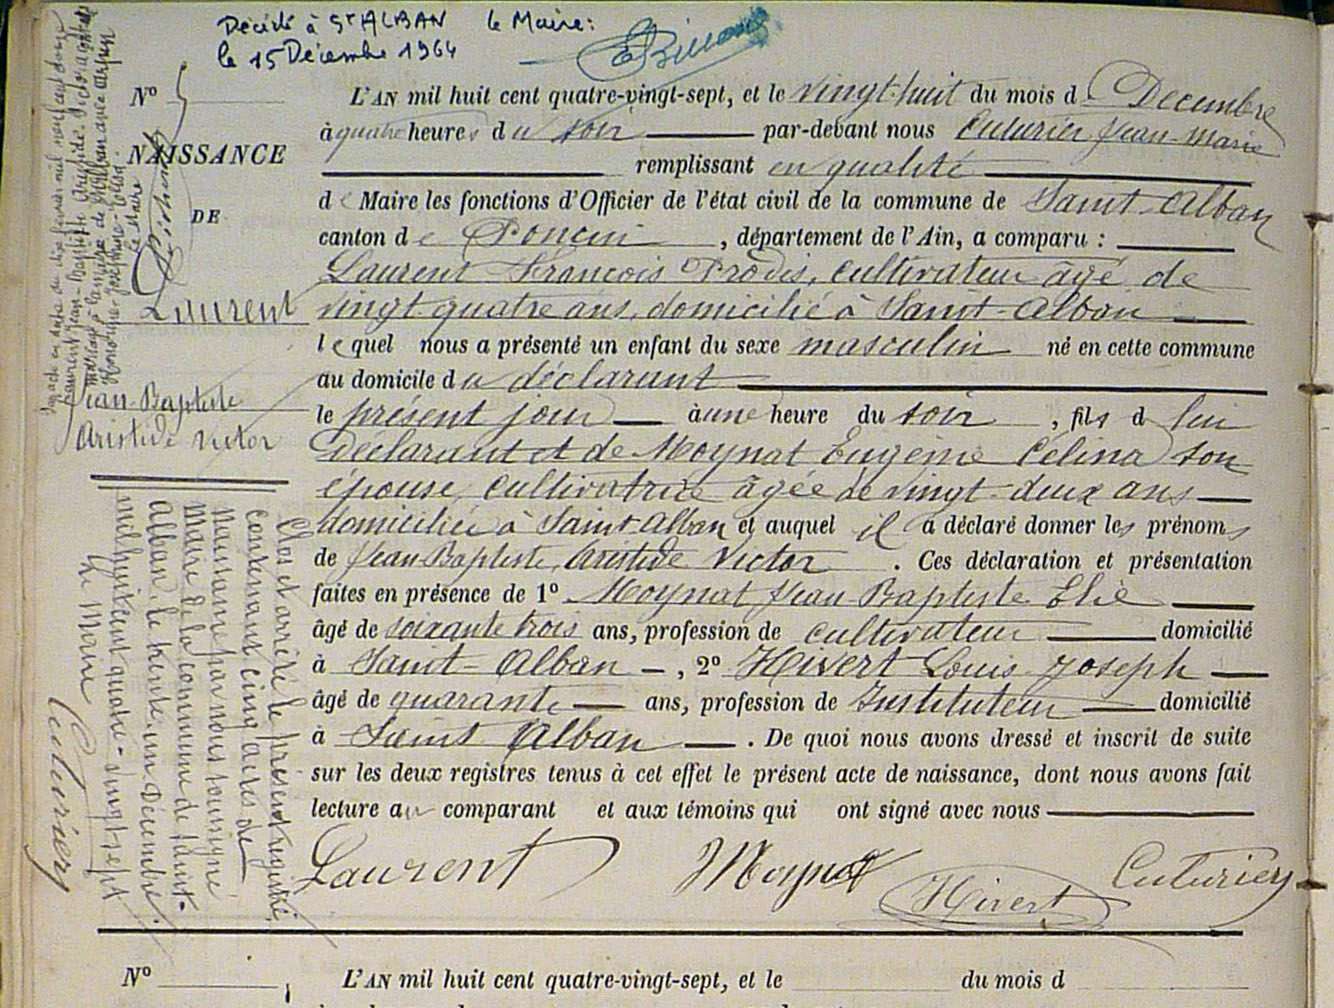 Décédé à St ALBAN le Maire:
le 15 Décembre 1964
Nº 5
NAISSANCE
DE
Laurent
Jean-Baptiste
Aristide Victor
L'AN mil huit cent quatre-vingt-sept, et le vingt-huit du mois d Décembre
à quatre heures du soir par-devant nous Cuturier Jean-Marie
remplissant en qualité
de Maire les fonctions d'Officier de l'état civil de la commune de Saint-Alban
canton de Poncin, département de l'Ain, a comparu :
Laurent François, cultivateur âgé de
vingt quatre ans, domicilié à Saint-Alban
lequel nous a présenté un enfant du sexe masculin né en cette commune
au domicile du déclarant
le présent jour à une heure du soir, fils d lui
Déclarant et de Moynat Eugénie Célina son
épouse, cultivatrice âgée de vingt-deux ans
domiciliée à Saint Alban et auquel il a déclaré donner les prénoms
de Jean-Baptiste, Aristide Victor. Ces déclaration et présentation
faites en présence de 1º Moynat Jean-Baptiste Elie
âgé de soixante trois ans, profession de cultivateur domicilié
à Saint-Alban, 2º Hivert Louis Joseph
âgé de quarante ans, profession de Instituteur domicilié
à Saint Alban. De quoi nous avons dressé et inscrit de suite
sur les deux registres tenus à cet effet le présent acte de naissance, dont nous avons fait
lecture au comparant et aux témoins qui ont signé avec nous
Laurent Moynat Hivert Cuturier
Clos et arrêté le présent registre,
contenant cinq actes de
Naissance par nous soussigné
Maire de la commune de Saint-
Alban, le trente un Décembre
mil huit cent quatre-vingt sept
Le Maire
Cuturier
Nº
L'AN mil huit cent quatre-vingt-sept, et le du mois d